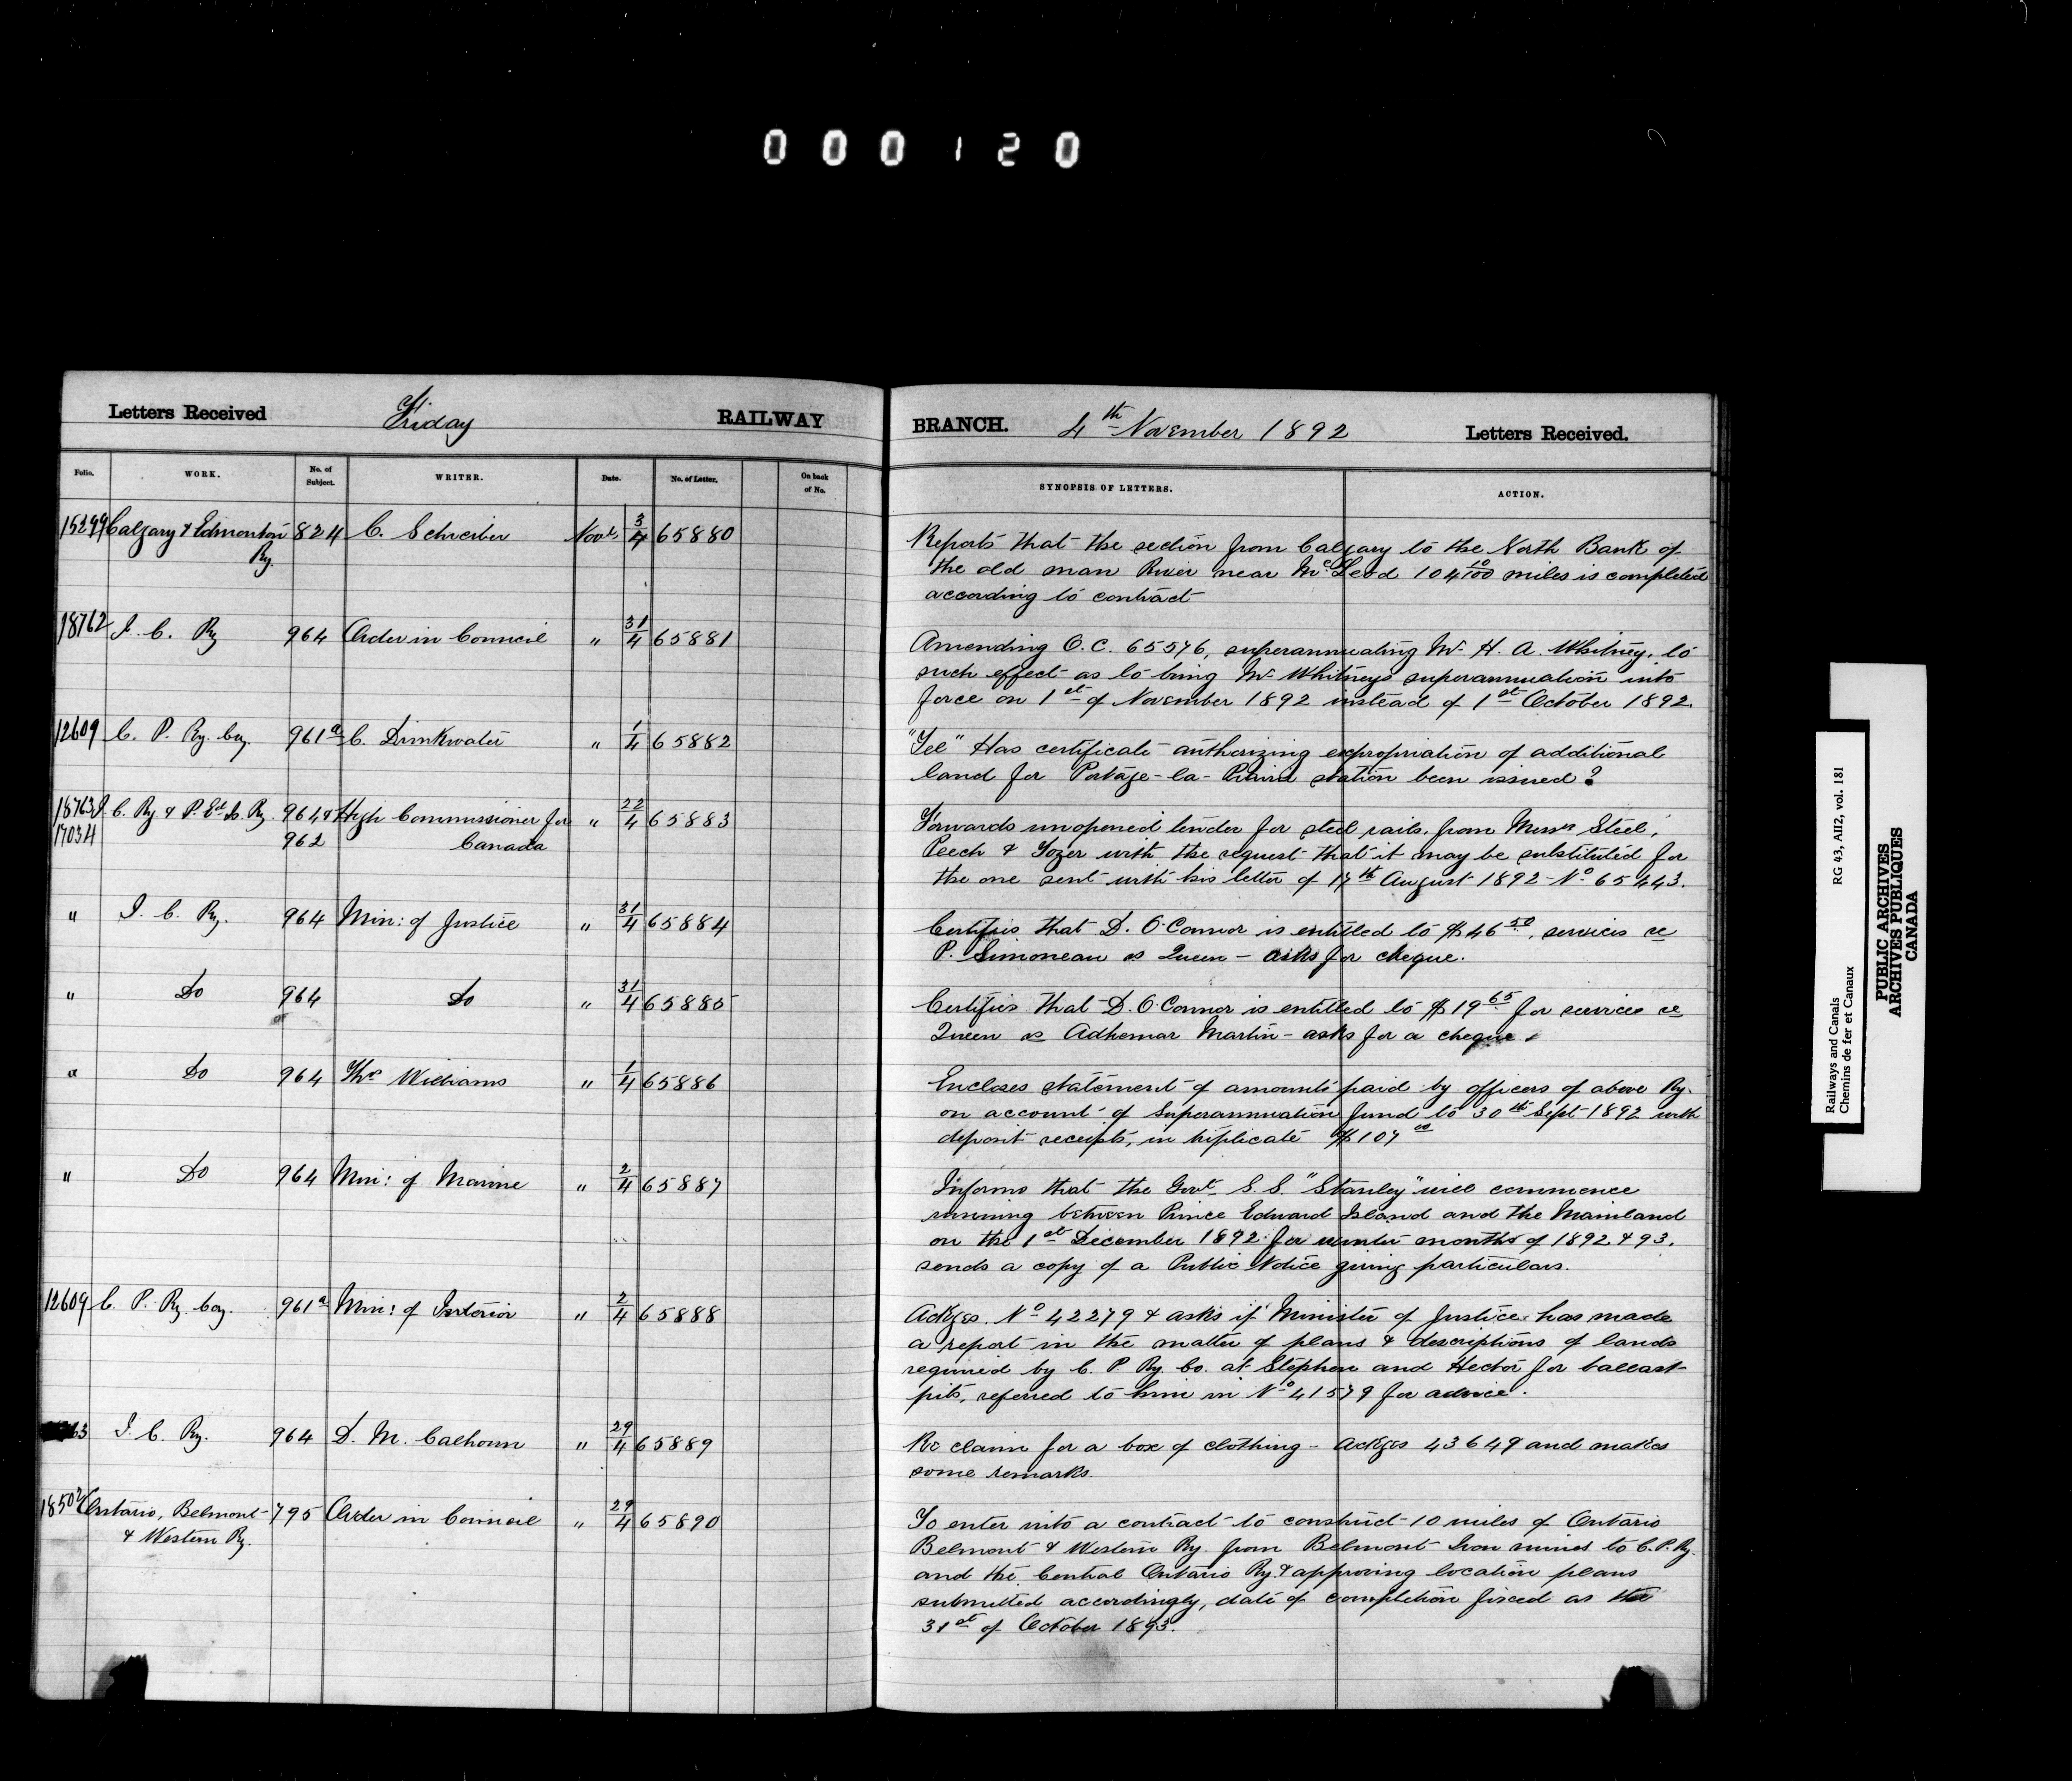 000120
Letters Received Friday RAILWAY BRANCH. 4th November 1892 Letters Received.
Folio. WORK. No. of Subject. WRITER. Date. No. of Letter. On back of No. SYNOPSIS OF LETTERS. ACTION.
15299 Calgary & Edmonton Ry. 824 C. Schreiber Nov. 3/4 65880
Reports that the section from Calgary to the North Bank of
the old man River near McLeod 104 10/100 miles is completed
according to contract
18762 I. C. Ry 964 Order in Council " 31/4 65881
Amending O.C. 65576, superannuating Mr H. A. Whitney, to
such effect as to bring Mr Whitneys superannuation into
force on 1st of November 1892 instead of 1st October 1892.
12609 C. P. Ry. Coy. 961a C. Drinkwater " 1/4 65882
"Tel" Has certificate authorizing expropriation of additional
land for Portage-la-Prairie station been issued?
18763 I. C. Ry & P. Ed. I. Ry. 964 & High Commissioner for " 22/4 65883
17034 962 Canada
Forwards unopened tender for steel rails, from Messrs Steel,
Peech & Tozer with the request that it may be substituted for
the one sent with his letter of 17th August 1892 - No 65443.
" I. C. Ry. 964 Min: of Justice " 31/4 65884
Certifies that D. O'Connor is entitled to $46.50, services re
P. Simoneau vs Queen - asks for cheque.
" Do 964 Do " 31/4 65885
Certifies that D. O'Connor is entitled to $19.65 for services re
Queen vs Adhemar Martin - asks for a cheque.
" Do 964 Thos Williams " 1/4 65886
Encloses statement of amounts paid by officers of above Ry.
on account of Superannuation fund to 30th Sept 1892 with
deposit receipts, in triplicate $107.00
" Do 964 Min: of Marine " 2/4 65887
Informs that the Govt. S. S. "Stanley" will commence
running between Prince Edward Island and the Mainland
on the 1st December 1892 for winter months of 1892 & 93.
sends a copy of a Public Notice giving particulars.
12609 C. P. Ry. Coy. 961a Min: of Interior " 2/4 65888
Ackges. No 42279 & asks if Minister of Justice has made
a report in the matter of plans & descriptions of lands
required by C. P. Ry. Co. at Stephen and Hector for ballast
pits, referred to him in No 41579 for advice.
63 I. C. Ry. 964 D. M. Calhoun " 29/4 65889
Re claim for a box of clothing - Ackges 43649 and makes
some remarks.
18502 Ontario, Belmont & Western Ry. 795 Order in Council " 29/4 65890
To enter into a contract to construct 10 miles of Ontario
Belmont & Western Ry. from Belmont Iron mines to C.P.Ry.
and the Central Ontario Ry. & approving location plans
submitted accordingly, date of completion fixed as the
31st of October 1893.
Railways and Canals RG 43, AII2, vol. 181
Chemins de fer et Canaux
PUBLIC ARCHIVES
ARCHIVES PUBLIQUES
CANADA